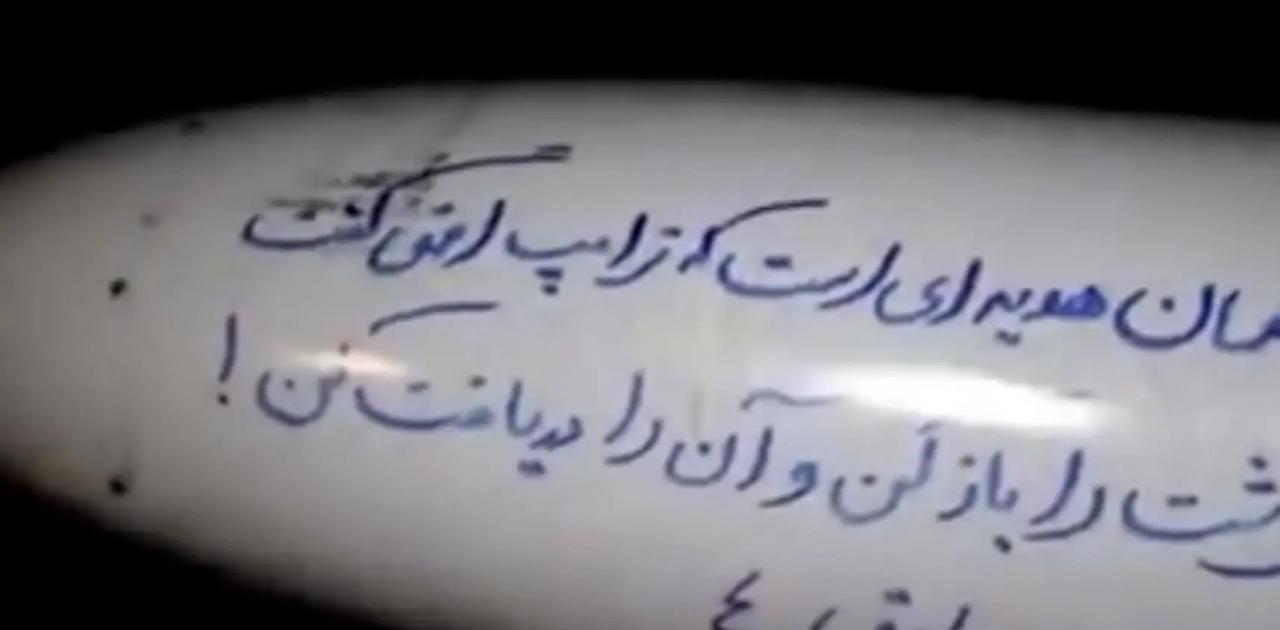 همان هدیه ای است که ترامپ احمق گفت
را باز کن و آن را دریافت کن !